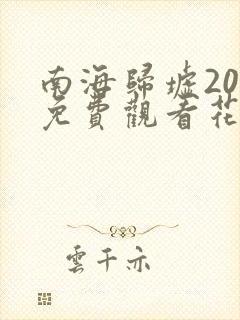 南海歸墟20
免費觀看花
雲千亦